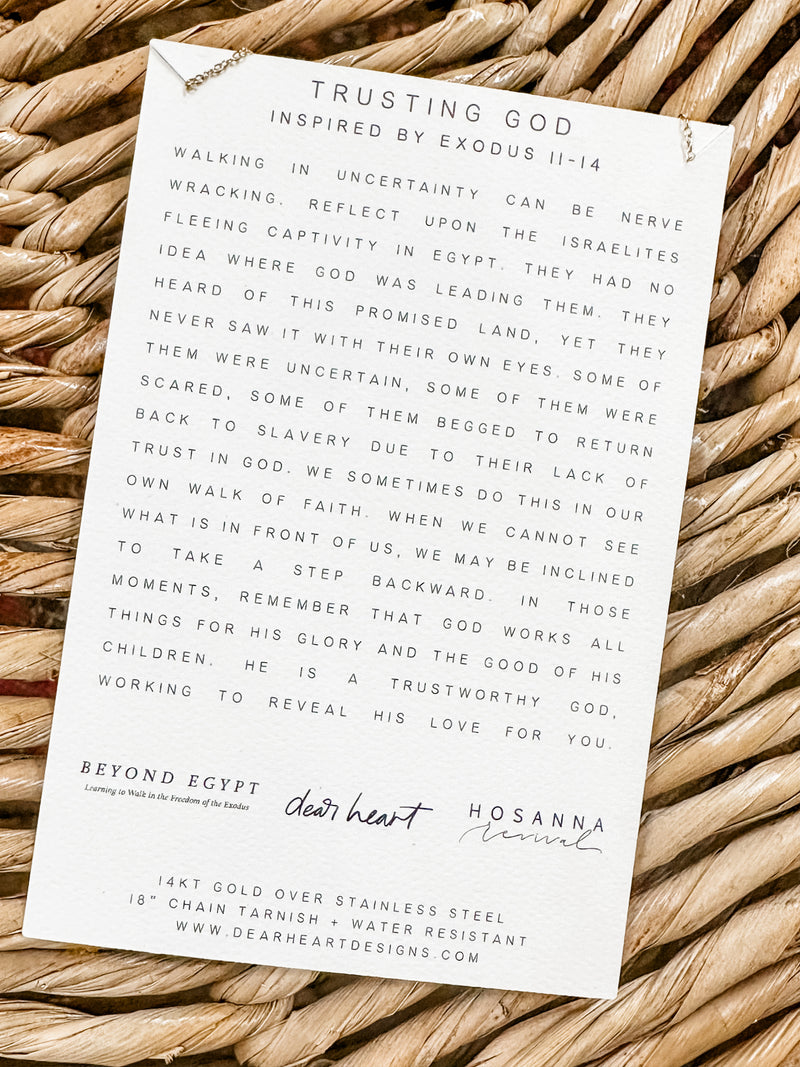 TRUSTING GOD
INSPIRED BY EXODUS 11-14
WALKING IN UNCERTAINTY CAN BE NERVE
WRACKING. REFLECT UPON THE ISRAELITES
FLEEING CAPTIVITY IN EGYPT. THEY HAD NO
IDEA WHERE GOD WAS LEADING THEM. THEY
HEARD OF THIS PROMISED LAND, YET THEY
NEVER SAW IT WITH THEIR OWN EYES. SOME OF
THEM WERE UNCERTAIN, SOME OF THEM WERE
SCARED, SOME OF THEM BEGGED TO RETURN
BACK TO SLAVERY DUE TO THEIR LACK OF
TRUST IN GOD. WE SOMETIMES DO THIS IN OUR
OWN WALK OF FAITH. WHEN WE CANNOT SEE
WHAT IS IN FRONT OF US, WE MAY BE INCLINED
TO TAKE A STEP BACKWARD. IN THOSE
MOMENTS, REMEMBER THAT GOD WORKS ALL
THINGS FOR HIS GLORY AND THE GOOD OF HIS
CHILDREN. HE IS A TRUSTWORTHY GOD,
WORKING TO REVEAL HIS LOVE FOR YOU.
BEYOND EGYPT
Learning to Walk in the Freedom of the Exodus
dear heart
HOSANNA
revival
14KT GOLD OVER STAINLESS STEEL
18" CHAIN TARNISH + WATER RESISTANT
WWW.DEARHEARTDESIGNS.COM